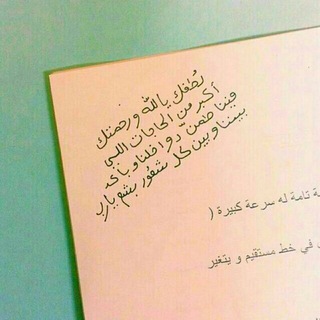 لطفك يا الله ورحمتك
أكبر من الحاجات اللي
فيننا طمن دواخلنا وباعد
بيننا وبين كل شعور بشع يارب
ة تامة له سرعة كبيرة (
في خط مستقيم و بتغير